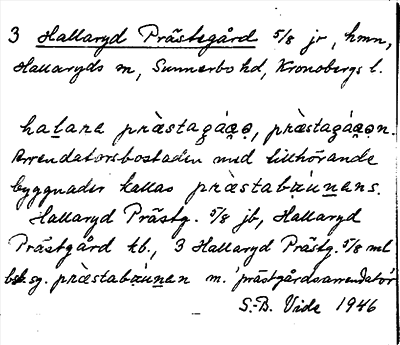 3 Hallaryd Prästegård 5/8 jr, hmn,
Hallaryds sn, Sunnerbo hd, Kronobergs l.
haḻara præ̀stagáạ̊ə̣, præ̀stagáạ̊ə̣n.
Arrendatorsbostaden med tillhörande
byggnader kallas præ̀stabẓ́uṉens.
Hallaryd Prästg. 5/8 jb, Hallaryd
Prästgård kb., 3 Hallaryd Prästg. 5/8 ml
bsk. sg. præ̀stabẓ́uṉen m. 'prästgårdsarrendator'
S.-B. Vide 1946